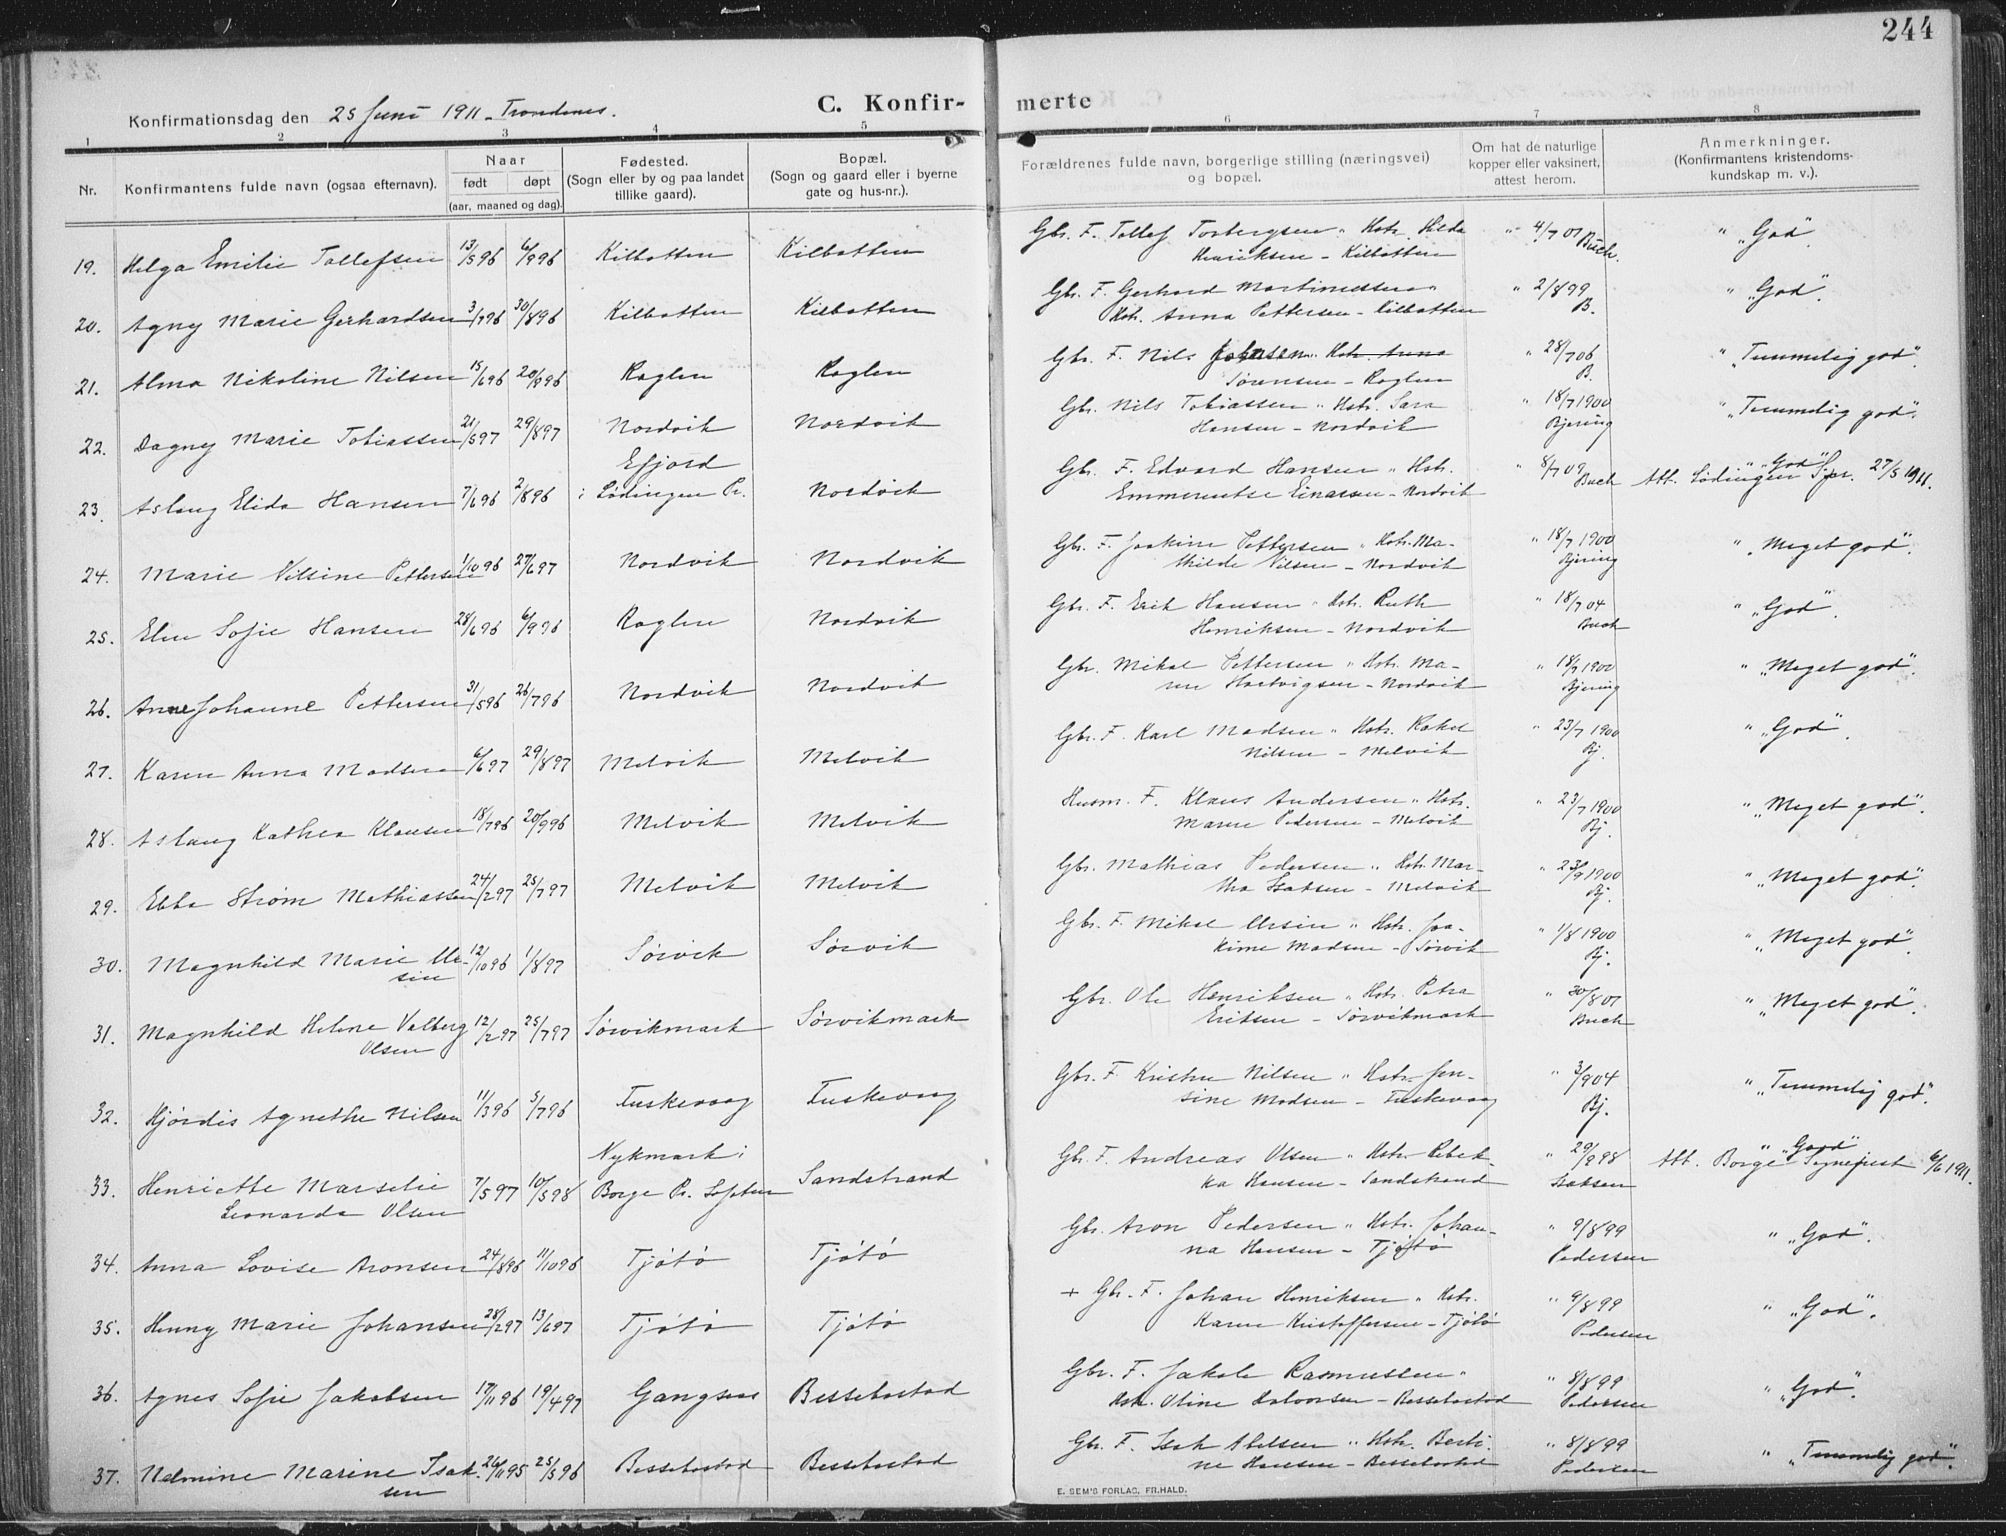 244
Konfirmationsdag den 25 Juni 1911 - Trondenes.
C. Konfir- merte
1 2 3 4 5 6 7 8
Nr.
Konfirmantens fulde navn (ogsaa efternavn).
Naar
født døpt
(aar, maaned og dag).
Fødested.
(Sogn eller by og paa landet
tillike gaard).
Bopæl.
(Sogn og gaard eller i byerne
gate og hus-nr.).
Forældrenes fulde navn, borgerlige stilling (næringsvei)
og bopæl.
Om hat de naturlige
kopper eller vaksinert,
attest herom.
Anmerkninger.
(Konfirmantens kristendoms-
kundskap m. v.).
19. Helga Emilie Tollefsen 13/5 96 6/9 96 Kilbotten Kilbotten Gbr. F. Tollef Torbergsen " Hstr. Hilda " 4/7 01 Buch. " "God".
Henriksen - Kilbotten
20. Agny Marie Gerhardsen 3/7 96 30/8 96 Kilbotten Kilbotten Gbr. F. Gerhard Martinussen " " 2/8 99 " "God".
Hstr. Anna Pettersen - Kilbotten B.
21. Alma Nikoline Nilsen 15/6 96 20/9 96 Roglen Roglen Gbr. F. Nils Johnsen " Hstr. Anna " 28/7 06 " "Temmelig god".
Sørensen - Roglen B.
22. Dagny Marie Tobiassen 21/5 97 29/8 97 Nordvik Nordvik Gbr. Nils Tobiassen " Hstr. Sara " 18/7 1900 " "Temmelig god".
Hansen - Nordvik Bjering
23. Aslaug Elida Hansen 7/6 96 2/8 96 Efjord Nordvik Gbr. F. Edvard Hansen " Hstr. " 8/7 09 " "God"
i Lødingen Pr. Emmerentse Einarsen - Nordvik Buch Att. Lødingen Spr. 27/5 1911.
24. Marie Nilsine Pettersen 1/10 96 27/6 97 Nordvik Nordvik Gbr. F. Joakim Pettersen " Hstr. Ma- " 18/7 1900 " "Meget god".
thilde Nilsen - Nordvik Bjering
25. Elen Sofie Hansen 28/6 96 6/9 96 Roglen Nordvik Gbr. F. Erik Hansen " Hstr. Ruth " 18/7 04 " "God".
Henriksen - Nordvik Buch
26. Anne Johanne Pettersen 31/5 96 26/7 96 Nordvik Nordvik Gbr. Mikal Pettersen " Hstr. Ma- " 18/7 1900 " "Meget god".
ren Hartvigsen - Nordvik Bjering
27. Karen Anna Madsen 6/6 97 29/8 97 Melvik Melvik Gbr. F. Karl Madsen " Hstr. Rakel " 23/7 1900 " "God".
Nilsen - Melvik Bj.
28. Aslaug Kathea Klausen 18/7 96 20/9 96 Melvik Melvik Husm. F. Klaus Andersen " Hstr. " 23/7 1900 " "Meget god".
Maren Pedersen - Melvik Bj.
29. Ebba Strøm Mathiassen 24/2 97 25/7 97 Melvik Melvik Gbr. Mathias Pedersen " Hstr. Mar- " 23/9 1900 " "Meget god".
tha Isaksen - Melvik Bj.
30. Magnhild Marie Ur- 12/10 96 1/8 97 Sørvik Sørvik Gbr. F. Mikal Ursin " Hstr. Joa- " 1/8 1900 " "Meget god".
sin kime Madsen - Sørvik Bj.
31. Magnhild Helene Valberg 12/2 97 25/7 97 Sørvikmark Sørvikmark Gbr. Ole Henriksen " Hstr. Petra " 30/8 01 " "Meget god".
Olsen Eriksen - Sørvikmark Buch
32. Hjørdis Agnethe Nilsen 11/3 96 5/7 96 Fuskevaag Fuskevaag Gbr. F. Kristen Nilsen " Hstr. Jen- " 3/9 04 " "Temmelig god".
sine Madsen - Fuskevaag Bj.
33. Henriette Marselie 7/5 97 10/5 98 Nykmark i Sandstrand Gbr. F. Andreas Olsen " Hstr. Rebek- " 29/9 98 " "God"
Leonarda Olsen Borge Pr. Lofoten ka Hansen - Sandstrand Isaksen Att. Borge Sogneprest 6/6 1911.
34. Anna Lovise Aronsen 24/8 96 11/10 96 Tjøtø Tjøtø Gbr. Aron Pedersen " Hstr. Johan- " 9/8 99 " "God".
na Hansen - Tjøtø Pedersen
35. Henny Marie Johansen 28/2 97 13/6 97 Tjøtø Tjøtø + Gbr. F. Johan Henriksen " Hstr. " 9/8 99 " "God".
Karen Kristoffersen - Tjøtø Pedersen
36. Agnes Sofie Jakobsen 17/11 96 19/4 97 Gangsaas Bessebostad Gbr. F. Jakob Rasmussen " " 8/8 99 " "God".
Hstr. Oline Halvorsen - Bessebostad Pedersen
37. Helmine Marine Isak- 26/11 95 25/5 96 Bessebostad Bessebostad Gbr. F. Isak Nilsen " Hstr. Berti- " 8/8 99 " "Temmelig god".
sen ne Hansen - Bessebostad Pedersen
E. SEM'S FORLAG, FR.HALD.